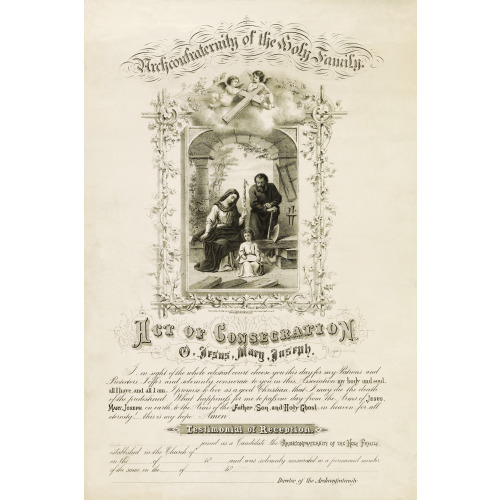 Archconfraternity of the Holy Family.
Act of Consecration
O, Jesus, Mary, Joseph,
I, in sight of the whole celestial court choose you this day for my Patrons and
Protectors I offer and solemnly consecrate to you in this Association my body and soul,
all I have, and all I am. I promise to live as a good Christian, that I may die the death
of the predestined. What happiness for me to pass one day from the Arms of Jesus,
Mary, Joseph, on earth, to the Arms of the Father, Son, and Holy Ghost, in heaven for all
eternity! this is my hope Amen
Testimonial of Reception.
joined as a Candidate the Archconfraternity of the Holy Family
established in the Church of
on the of 18 and was solemnly received as a permanent member
of the same on the of 18
Director of the Archconfraternity